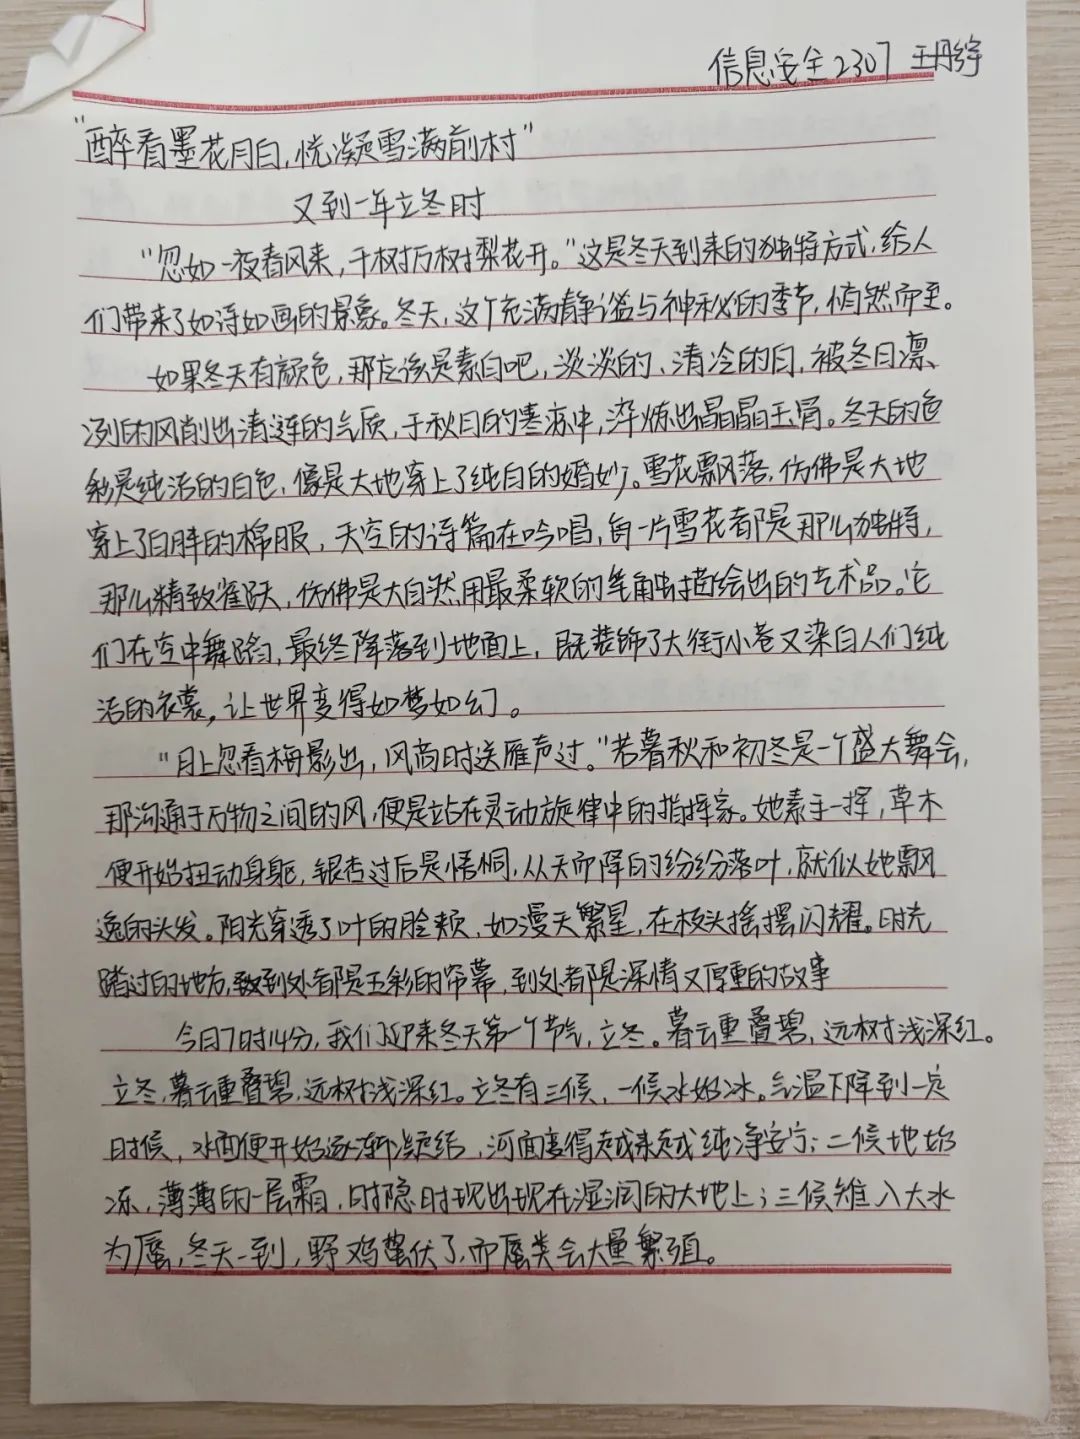 信息安全2307 王丹
"醉看墨花月白,恍凝雪满前村"
又到一年立冬时
"忽如一夜春风来,千树万树梨花开。"这是冬天到来的独特方式,给人
们带来了如诗如画的景象。冬天,这个充满静谧与神秘的季节,悄然而至。
如果冬天有颜色,那应该是素白吧,淡淡的、清冷的白,被冬日凛
冽的风削出清涟的气质,于秋月的寒凉中,淬炼出晶晶玉骨。冬天的色
彩是纯洁的白色,像是大地穿上了纯白的婚纱。雪花飘落,仿佛是大地
穿上了白胖的棉服,天空的诗篇在吟唱,每一片雪花都是那么独特,
那么精致雀跃,仿佛是大自然用最柔软的笔触描绘出的艺术品。它
们在空中舞蹈,最终降落到地面上,既装饰了大街小巷又染白人们纯
洁的衣裳,让世界变得如梦如幻。
"月上忽看梅影出,风高时送雁声过。"若暮秋和初冬是一个盛大舞会,
那沟通于万物之间的风,便是站在灵动旋律中的指挥家。她素手一挥,草木
便开始扭动身躯,银杏过后是梧桐,从天而降的纷纷落叶,就似她飘
逸的头发。阳光穿透了叶的脸颊,如漫天繁星,在枝头摇摆闪耀。时光
踏过的地方,到处都是五彩的帘幕,到处都是深情又厚重的故事
今日7时14分,我们迎来冬天第一个节气,立冬。暮云重叠碧,远树浅深红。
立冬,暮云重叠碧,远树浅深红。立冬有三候,一候水始冰。气温下降到一定
时候,水面便开始逐渐凝结,河面变得越来越纯净安宁;二候地始
冻,薄薄的一层霜,时隐时现出现在湿润的大地上;三候雉入大水
为蜃,冬天一到,野鸡蛰伏了,而蜃类会大量繁殖。